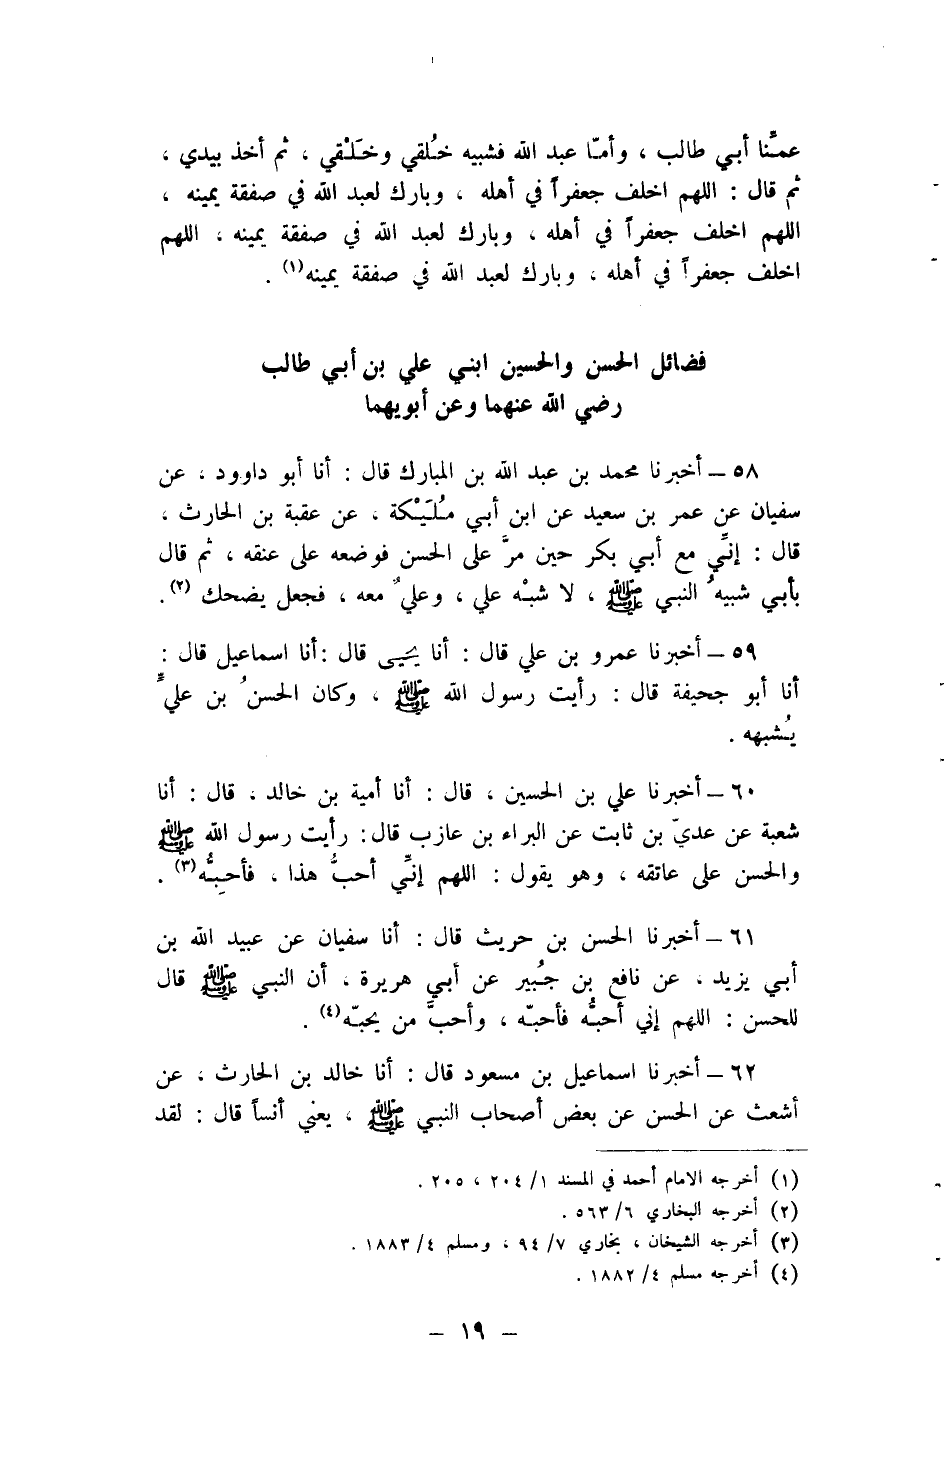 عمنّا أبي طالب ، وأمّا عبد الله فشبيه خُلقي وخَلْقي ، ثم أخذ بيدي ،
ثم قال : اللهم اخلف جعفراً في أهله ، وبارك لعبد الله في صفقة يمينه ،
اللهم اخلف جعفراً في أهله ، وبارك لعبد الله في صفقة يمينه ، اللهم
اخلف جعفراً في أهله ، وبارك لعبد الله في صفقة يمينه(١) .
فضائل الحسن والحسين ابني علي بن أبي طالب
رضي الله عنهما وعن أبويهما
٥٨ – أخبرنا محمد بن عبد الله بن المبارك قال : أنا أبو داوود ، عن
سفيان عن عمر بن سعيد عن ابن أبي مُلَيْكة ، عن عقبة بن الحارث ،
قال : إنِّي مع أبي بكر حين مرَّ على الحسن فوضعه على عنقه ، ثم قال
بأبي شبيهُ النبي ﷺ ، لا شبْه علي ، وعليٌ معه ، فجعل يضحك (٢).
٥٩ – أخبرنا عمرو بن علي قال : أنا يحيى قال :أنا اسماعيل قال :
أنا أبو جحيفة قال : رأيت رسول الله ﷺ ، وكان الحسنُ بن عليٍّ
يُشبهه .
٦٠ – أخبرنا علي بن الحسين ، قال : أنا أمية بن خالد ، قال : أنا
شعبة عن عديّ بن ثابت عن البراء بن عازب قال: رأيت رسول الله ﷺ
والحسن على عاتقه ، وهو يقول : اللهم إنِّي أحبُّ هذا ، فأحِبُّه(٣) .
٦١ – أخبرنا الحسن بن حريث قال : أنا سفيان عن عبيد الله بن
أبي يزيد ، عن نافع بن جُبير عن أبي هريرة ، أن النبي ﷺ قال
للحسن : اللهم إني أحبُّه فأحبّه ، وأحبَّ من يحبّه(٤) .
٦٢ – أخبرنا اسماعيل بن مسعود قال : أنا خالد بن الحارث ، عن
أشعث عن الحسن عن بعض أصحاب النبي ﷺ ، يعني أنساً قال : لقد
(١) أخرجه الامام أحمد في المسند ١/ ٢٠٤ ، ٢٠٥ .
(٢) أخرجه البخاري ٦/ ٥٦٣ .
(٣) أخرجه الشيخان ، بخاري ٧/ ٩٤ ، ومسلم ٤/ ١٨٨٣ .
(٤) أخرجه مسلم ٤/ ١٨٨٢ .
– ١٩ –